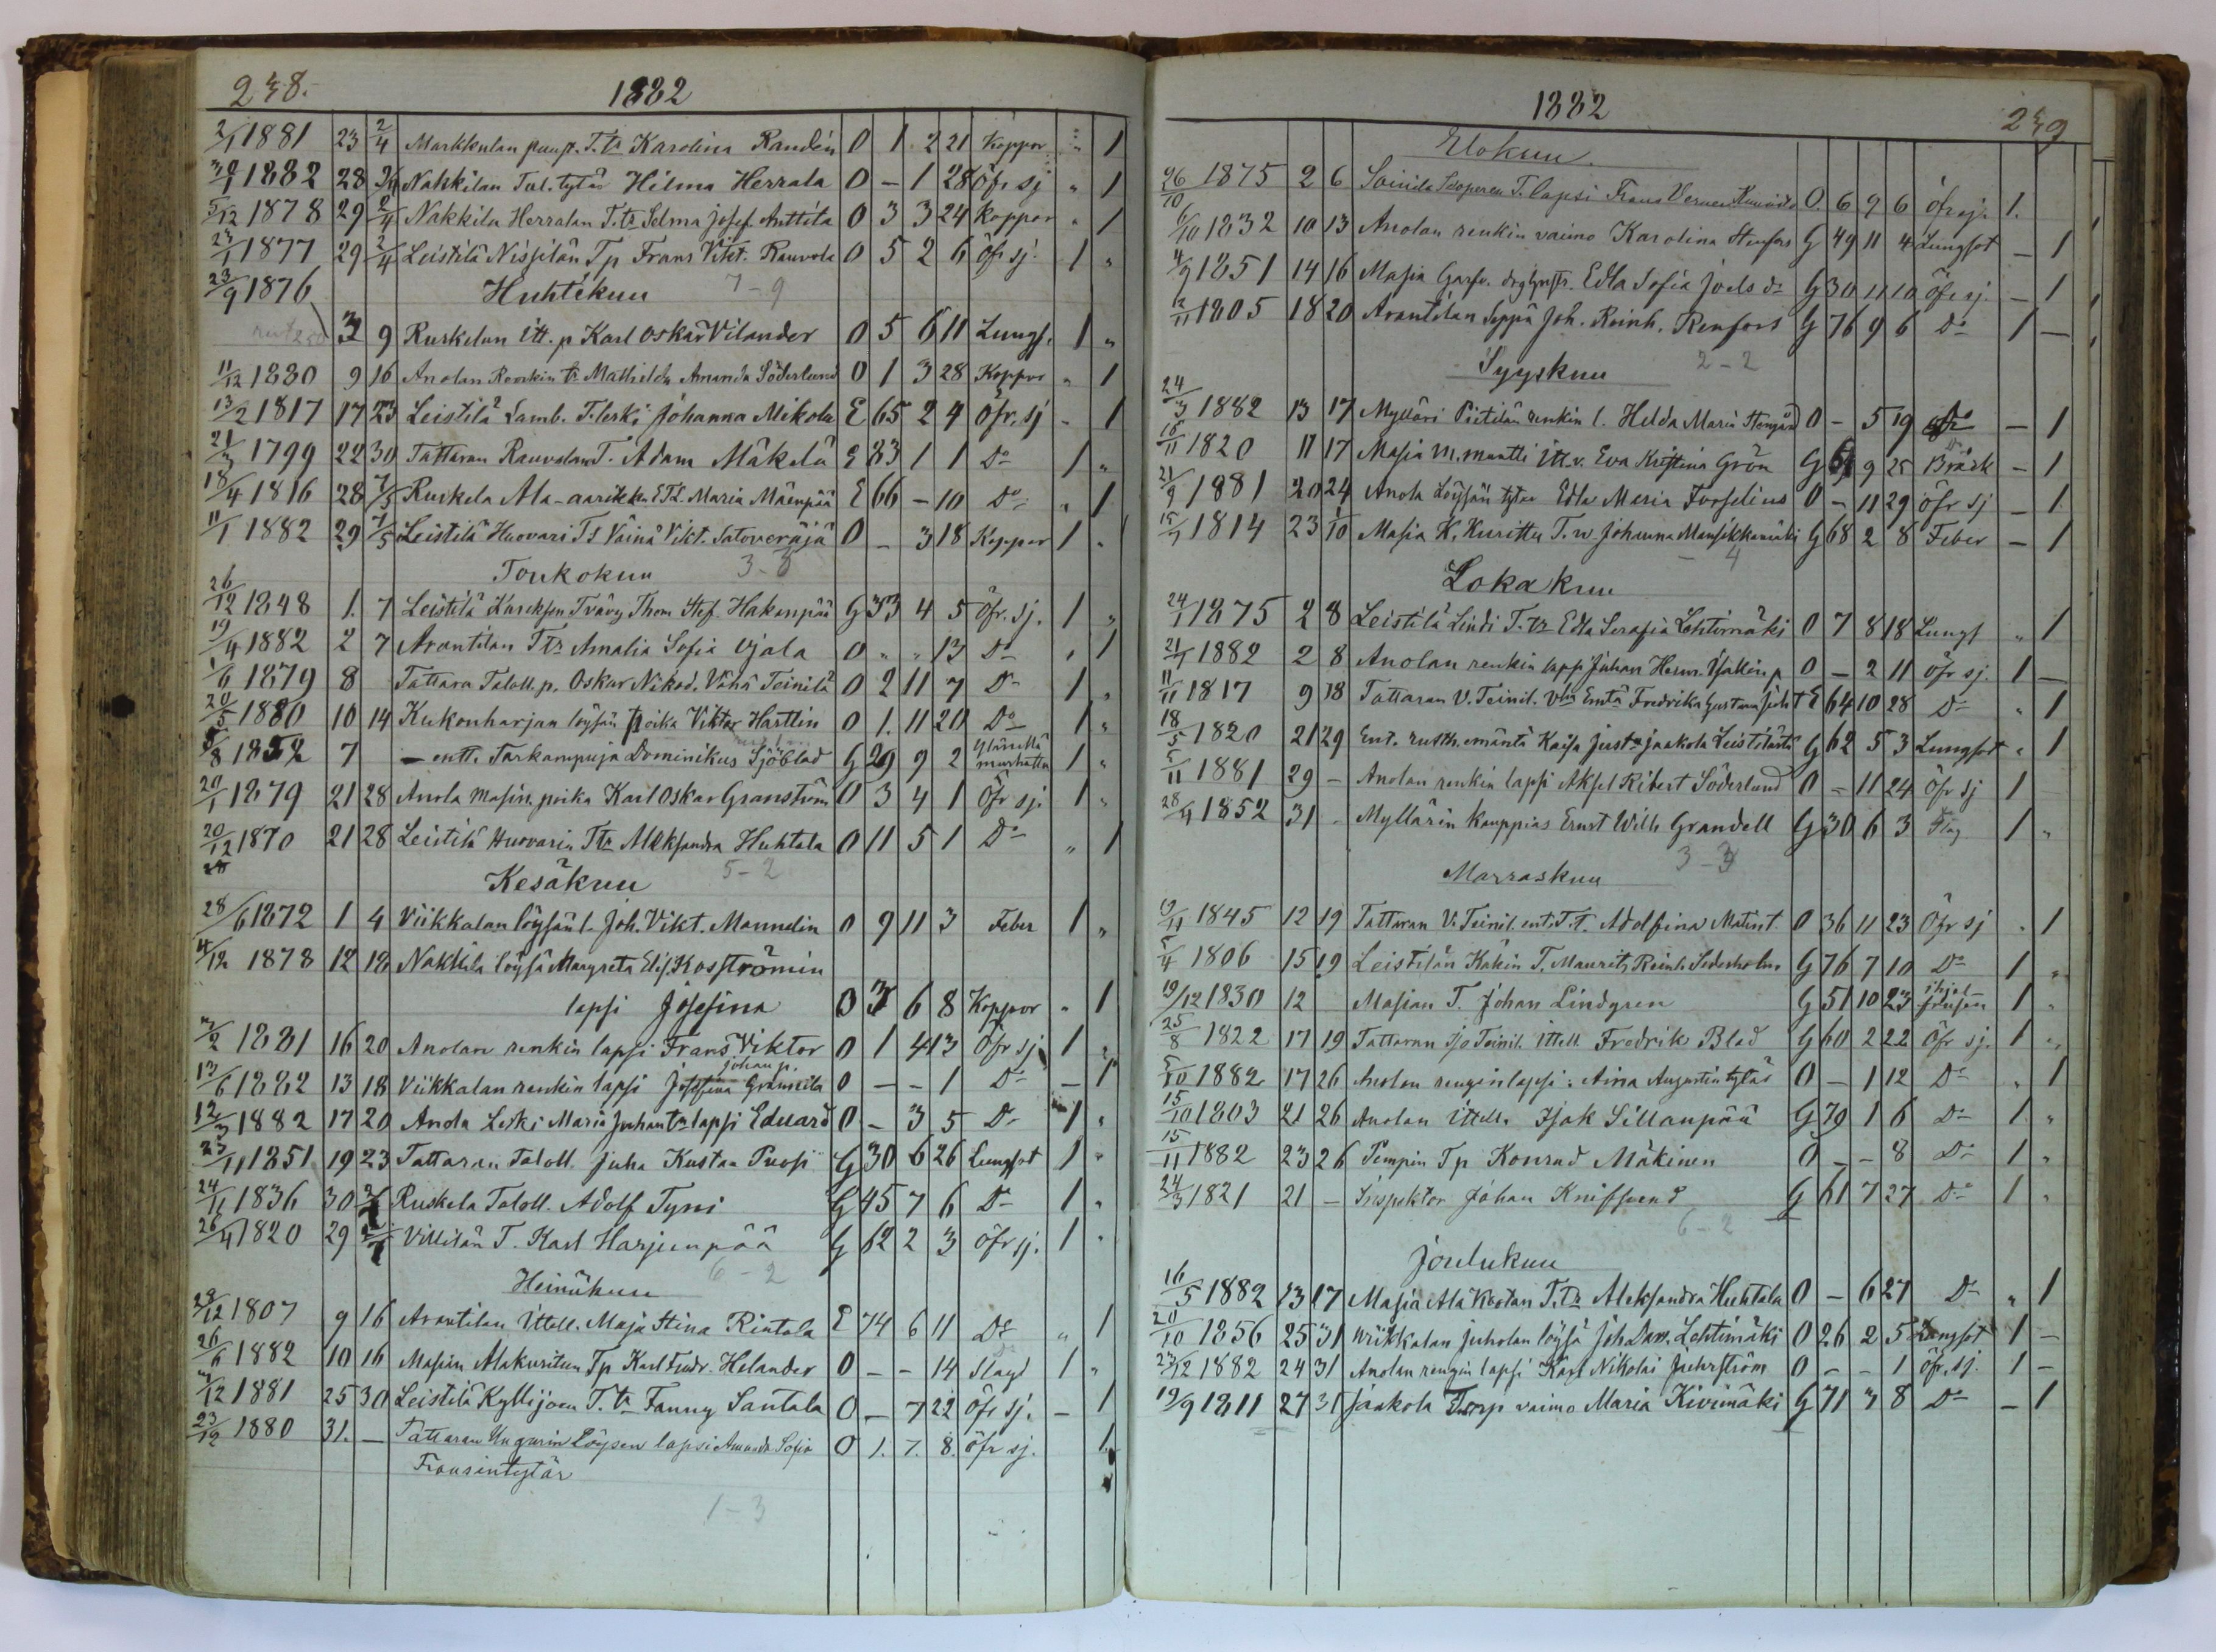 238.
1882
2/1 1881 23 2/4 Markkulan T. tr Karolina Randén 0 1 2 21 Koppor " 1
30/1 1882 28 2/4 Nakkilan Tal. tytär Hilma Herrala 0 – 1 28 Öfr. sj " 1
5/12 1878 29 2/4 Nakkila Herralan T. tr Selma Josef. Anttila 0 3 3 24 Koppor " 1
23/1 1877 29 2/4 Leistilä Nissilän Tp Frans Vikt. Rauvola 0 5 2 6 Öfr sj. 1 "
23/9 1876 Huhtikuu 7–9
3 9 Ruskelan itt. p Karl Oskar Vilander 0 5 6 11 Lungs. 1 "
11/12 1880 9 16 Anolan Renkin tr Mathilda Amanda Söderlund 0 1 3 28 Koppor " 1
13/2 1817 17 23 Leistilä Lamb. T. leski Johanna Mikola E 65 2 4 Öfr. sj " 1
21/3 1799 22 30 Tattaran Rauvolan T. Adam Mäkelä E 83 1 1 Do 1 "
18/4 1816 28 7/5 Ruskela Ala-aarikka ETL. Maria Mäenpää E 66 – 10 Do " 1
11/1 1882 29 7/5 Leistilä Huovari Ts Väinä Vikt. Satoveräjä 0 – 3 18 Koppor 1 "
Toukokuu 3–8
26/12 1848 1. 7 Leistilä Thom Stef. Hakenpää G 33 4 5 Öfr. sj. 1 "
19/4 1882 2 7 Arantilan Ttr Amalia Sofia Ojala 0 " " 13 Do " 1
1/6 1879 8 Tattara Taloll. p. Oskar Nikod. Vähä Teinilä 0 2 11 7 Do 1 "
20/5 1880 10 14 Kukonharjan löysän poika Viktor Harttin 0 1. 11 20 Do 1 "
5/8 1852 7 – entt. Tarkampuja Dominikus Sjöblad G 29 9 2 murhattu 1 "
20/1 1879 21 28 Anola Masin. poika Karl Oskar Granström 0 3 4 1 Öfr sj. 1 "
20/12 1870 21 28 Leistilä Huovarin Ttr Aleksandra Huhtala 0 11 5 1 Do " 1
Kesäkuu 5–2
28/6 1872 1 4 Viikkalan löysän l. Joh. Vikt. Mannelin 0 9 11 3 Feber 1 "
4/12 1878 12 18 Nakkila löysä Margreta Elis. Kosströmin
lapsi Josefina 0 3 6 8 Koppor " 1
3/2 1881 16 20 Anolan renkin lapsi Frans Viktor 0 1 4 13 Öfr sj 1 "
Johan p.
13/6 1882 13 18 Viikkalan renkin lapsi Josefina 0 – – 1 Do – 1
12/3 1882 17 20 Anola Leski Maria Juhan tr lapsi Eduard 0 – 3 5 Do 1 "
23/11 1851 19 23 Tattaran Taloll. Juha Kustaa Tuosi G 30 6 26 Lungsot 1 "
24/11 1836 30 2/7 Ruskela Taloll. Adolf Tyni G 45 7 6 Do 1 "
26/4 1820 29 2/7 Villilän T. Karl Harjunpää G 62 2 3 Öfr sj. 1 "
Heinäkuu 6–2
28/12 1807 9 16 Arantilan Ittell. Maja Stina Rintala E 74 6 11 Do " 1
26/6 1882 10 16 Masian Alakuritun Tp Karl Fredr. Helander 0 – – 14 Slag 1 "
3/12 1881 25 30 Leistilä Kyllijoen T. tr Fanny Santala 0 – 7 22 Öfr sj. – 1
23/12 1880 31. – Tattaran Ungurin Löysen lapsi Amanda Sofia 0 1. 7. 8. Öfr sj. 1
Fransintytär
1–3
1882
239
Elokuu
26/10 1875 2 6 T. lapsi Frans Verner 0. 6 9 6 Öfr sj. 1.
6/10 1832 10 13 Anolan renkin vaimo Karolina Stenfors G 49 11 4 Lungsot – 1
4/9 1851 14 16 Masia Edla Sofia Joels dr G 30 11 10 Öfr sj. – 1
2/11 1805 18 20 Arantilan Seppä Joh. Reinh. Renfors G 76 9 6 Do 1 –
Syyskuu 2–2
24/3 1882 13 17 Mylläri Piitilän renkin l. Hilda Maria 0 – 5 19 Do – 1
15/11 1820 11 17 Masia M. mantti Itt. v. Eva Kristina Grön G 61 9 25 Bråck – 1
21/9 1881 20 24 Anola Löysän tytär Edla Maria Forselius 0 – 11 29 Öfr sj – 1
15/7 1814 23 1/10 Masia K. Kurittu T. w. Johanna Mansikkamäki G 68 2 8 Feber – 1
– 4
Lokakuu
24/1 1875 2 8 Leistilä Lindi T. tr Edla Serafia Lehtimäki 0 7 8 18 Lungs " 1
21/7 1882 2 8 Anolan renkin lapsi Juhan Herm. Isakin p 0 – 2 11 Öfr sj. 1 –
11/11 1817 9 18 Tattaran V. Teinil. Vha Emtä Fredrika Gustava Juh T E 64 10 28 Do " 1
18/5 1820 21 29 Ent. rusth. emäntä Kaisa Just. tr Jaakola Leistilästä G 62 5 3 Lungsot " 1
5/11 1881 29 – Anolan renkin lapsi Aksel Ribert Söderlund 0 – 11 24 Öfr sj 1
28/4 1852 31 – Myllärin Kauppias Ernst Wilh. Grandell G 30 6 3 Slag 1 "
3–3
Marraskuu
19/11 1845 12 19 Tattaran V. Teinil. ent. T. t. Adolfina Matint. 0 36 11 23 Öfr sj " 1
5/4 1806 15 19 Leistilän Käkin T. Maurits Reinh. Sederholm G 76 7 10 Do 1 "
19/12 1830 12 Masian T. Johan Lindgren G 51 10 23 ihjelfrusen 1 "
25/8 1822 17 19 Tattaran Iso Teinil. Ittell Fredrik Blad G 60 2 22 Öfr sj. 1 "
5/10 1882 17 26 Anolan rengin lapsi: Aina Augustintytär 0 – 1 12 Do " 1
15/10 1803 21 26 Anolan Ittell. Isak Sillanpää G 79 1 6 Do 1 "
15/11 1882 23 26 Pimpin Tp Konrad Mäkinen 0 – – 8 Do 1 "
24/3 1821 21 – Inspektor Johan Knifsund G 61 7 27 Do 1 "
6–2
Joulukuu
16/5 1882 13 17 Masia Ala Kostan T. Tr Aleksandra Huhtala 0 – 6 27 Do " 1
20/10 1856 25 31 Wiikkalan Juholan löysä Joh. Dav. Lehtimäki 0 26 2 5 Lungsot 1 –
23/12 1882 24 31 Anolan rengin lapsi Karl Nikolai Juhrström 0 – – 1 Öfr. sj. 1 –
19/9 1811 27 31 Jaakola Torp vaimo Maria Kivimäki G 71 3 8 Do – 1